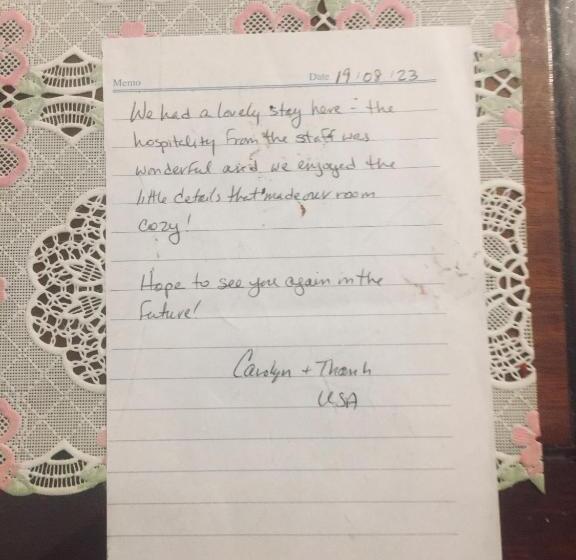 Memo
Date 19/08/23
We had a lovely stay here - the
hospitality from the staff was
wonderful and we enjoyed the
little details that made our room
cozy!
Hope to see you again in the
future!
Carolyn + Thanh
USA